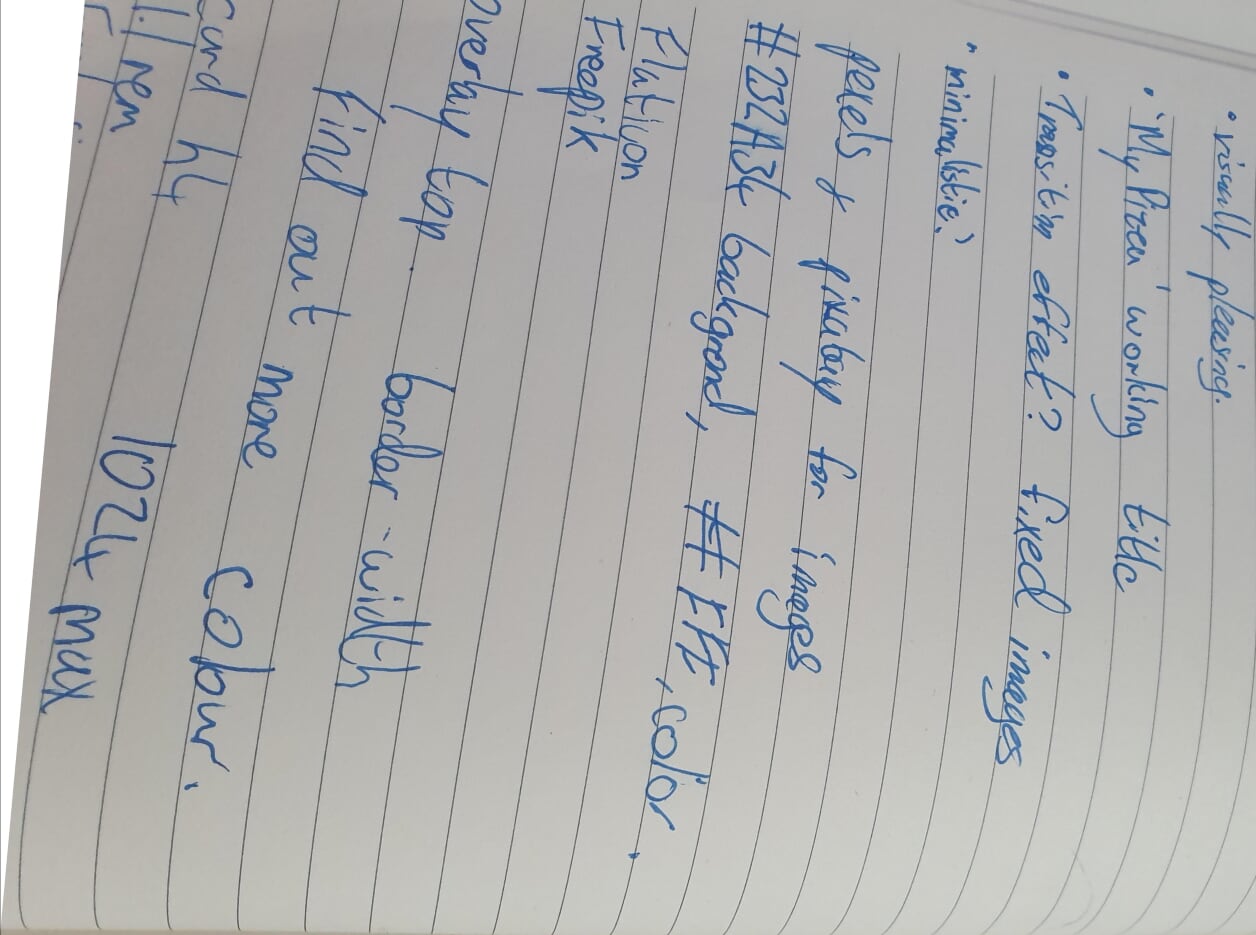 • visually pleasing.
• 'My Pizza' working title
• Transition effect? fixed images
• minimalistic?
pexels & pixabay for images
#232A34 backgrond, #FFF, color.
Flaticon
Freepik
overlay top. border-width
Find out more colour.
card h4
1.1 rem
1024 max